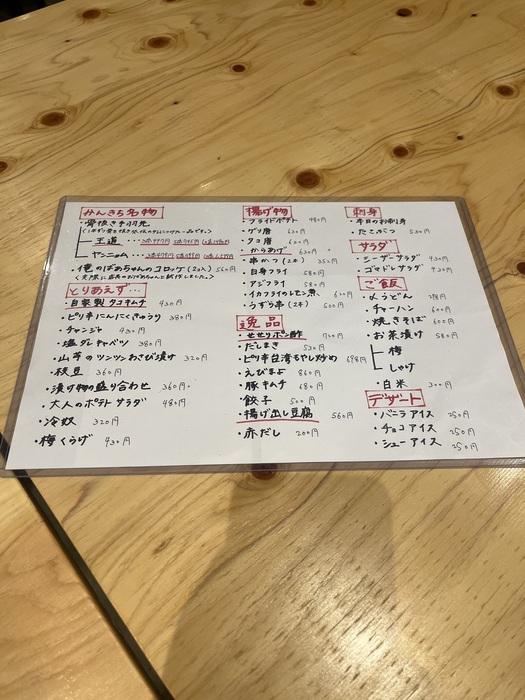 かんきち名物
・骨抜き手羽先
王道
ヤンニョム
・俺のばあちゃんのコロッケ(2コ入) 560円
とりあえず…
・自家製タコキムチ 430円
・ピリ辛にんにくきゅうり 380円
・チャンジャ 430円
・塩ダレキャベツ 380円
・山芋のツンツンわさび漬け 320円
・枝豆 360円
・漬け物の盛り合わせ 360円
・大人のポテトサラダ 480円
・冷奴 320円
・梅くらげ 430円
揚げ物
・フライドポテト 480円
・ゲソ唐 630円
・タコ唐 630円
・からあげ 630円
・串かつ(2本) 350円
・白身フライ 580円
・アジフライ 580円
・イカフライのレモン煮 630円
・うずら串(2本) 500円
逸品
・せせりポン酢 700円
・だしまき 530円
・ピリ辛台湾もやし炒め 698円
・えびまよ 860円
・豚キムチ 680円
・餃子 500円
・揚げ出し豆腐 560円
・赤だし 200円
刺身
・本日のお刺身
・たこぶつ 530円
サラダ
・シーザーサラダ 430円
・ゴマドレサラダ 430円
ご飯
・〆うどん
・チャーハン 600円
・焼きそば 600円
・お茶漬け 580円
梅
しゃけ
・白米 300円
デザート
・バニラアイス 250円
・チョコアイス 250円
・シューアイス 250円